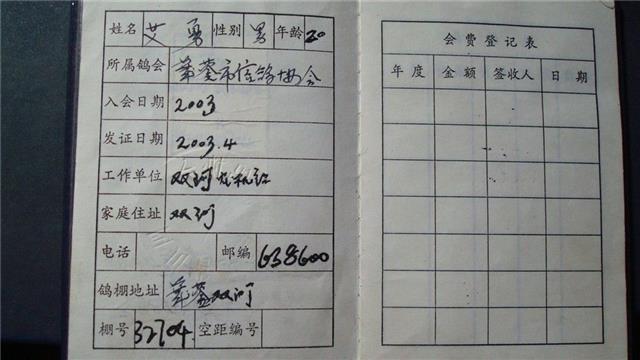 姓名 艾勇 性别 男 年龄 20
所属鸽会 华蓥市信鸽协会
入会日期 2003
发证日期 2003.4
工作单位 双河农机站
家庭住址 双河
电话 邮编 638600
鸽棚地址 华蓥双河
棚号 32704 空距编号
会费登记表
年度 金额 签收人 日期